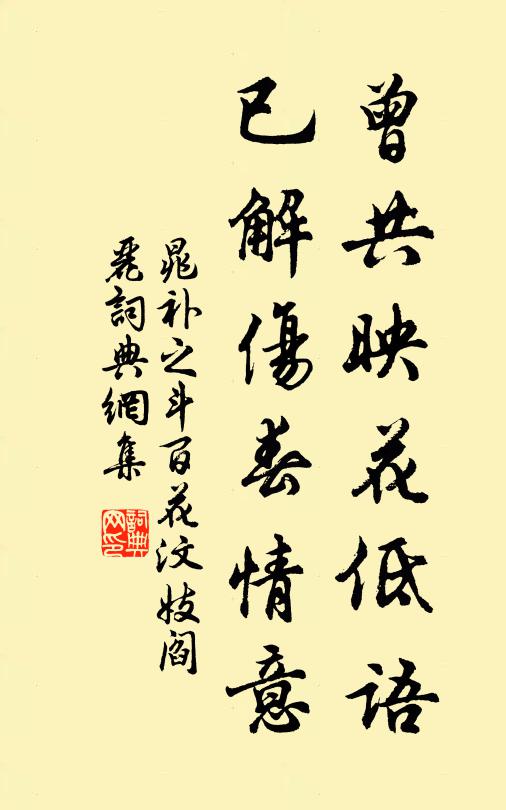 曾共映花低語
已解傷春情意
晁补之斗百花汶妓阎
麗詞典網集
詞典网印